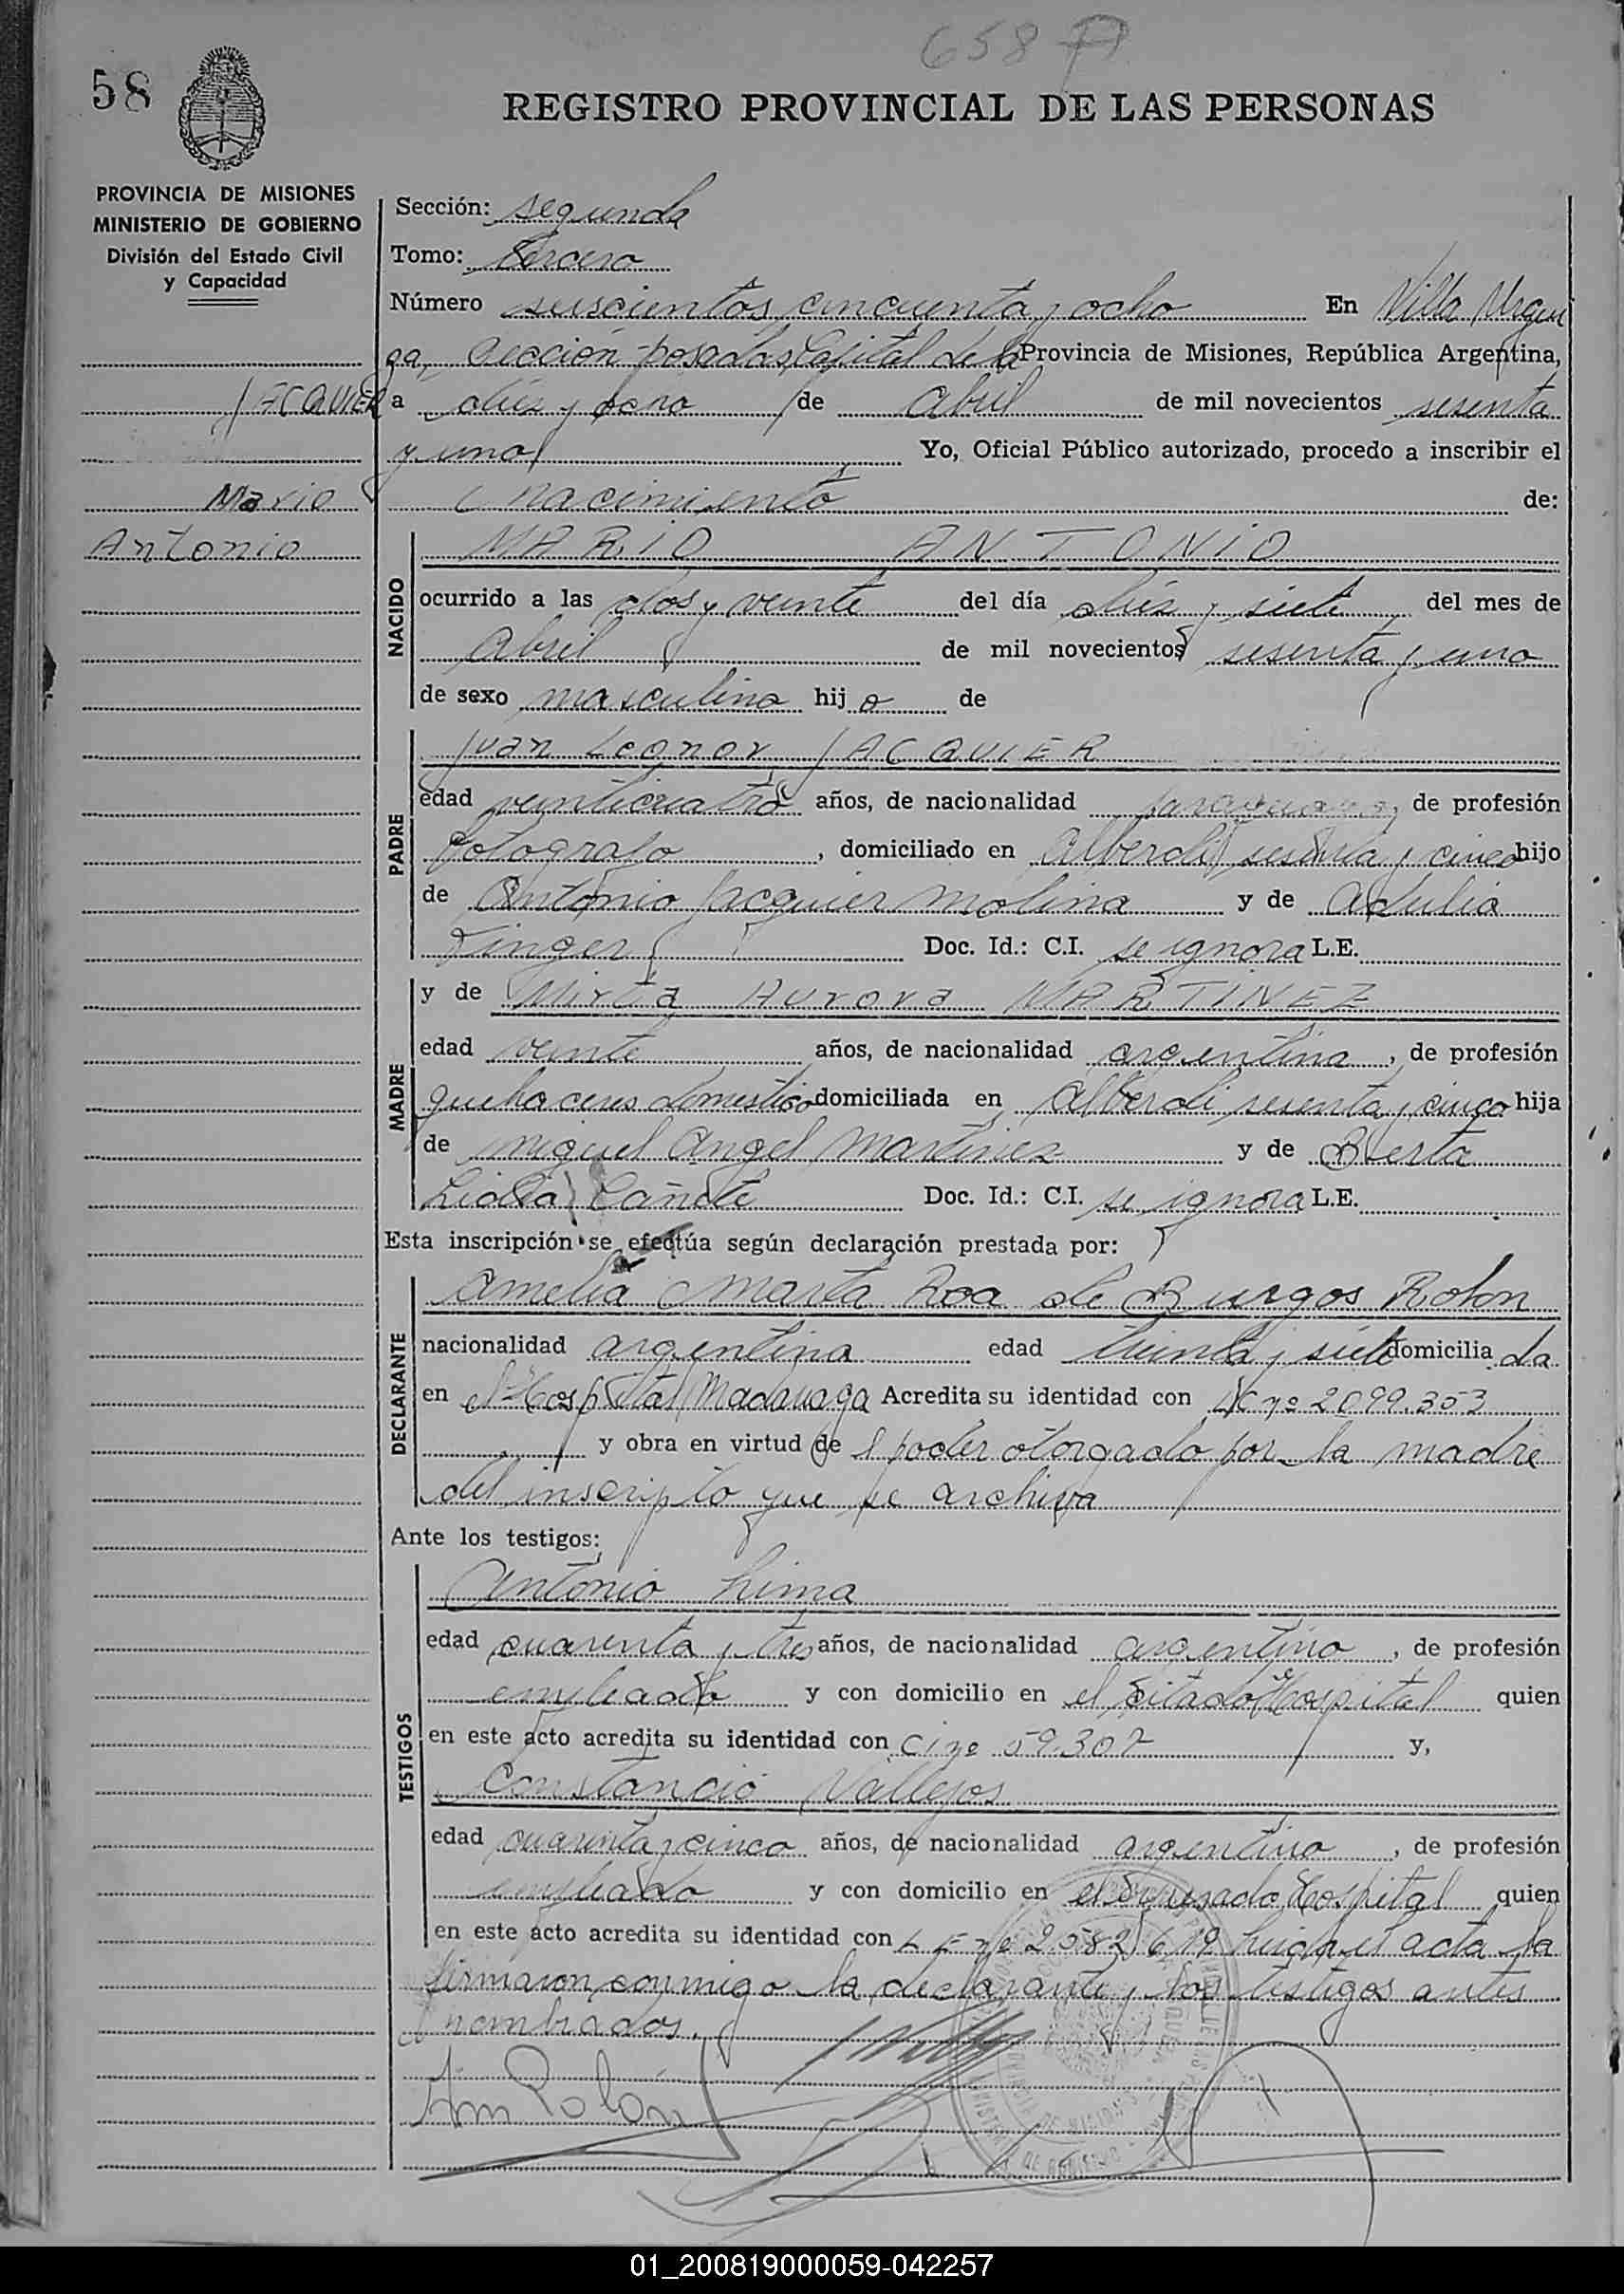 658 A
58
REGISTRO PROVINCIAL DE LAS PERSONAS
PROVINCIA DE MISIONES
MINISTERIO DE GOBIERNO
División del Estado Civil
y Capacidad
JACQUIER
Mario
Antonio
Sección: segunda
Tomo: tercero
Número seiscientos cincuenta y ocho En Villa Urqui
za, Sección Posadas Capital de la Provincia de Misiones, República Argentina,
a diez y ocho de Abril de mil novecientos sesenta
y uno Yo, Oficial Público autorizado, procedo a inscribir el
nacimiento de:
NACIDO
MARIO ANTONIO
ocurrido a las dos y veinte del día diez y siete del mes de
Abril de mil novecientos sesenta y uno
de sexo masculino hijo de
PADRE
Juan Leonor JACQUIER
edad veinticuatro años, de nacionalidad paraguaya, de profesión
fotografo, domiciliado en Alberdi sesenta y cinco hijo
de Antonio Jacquier Molina y de Adulia
Zinger Doc. Id.: C.I. se ignora L.E.
MADRE
y de Mirta Aurora MARTINEZ
edad veinte años, de nacionalidad argentina, de profesión
quehaceres domestico domiciliada en Alberdi sesenta y cinco hija
de Miguel Angel Martinez y de Berta
Lidia Cañete Doc. Id.: C.I. se ignora L.E.
Esta inscripción se efectúa según declaración prestada por:
DECLARANTE
Amelia Marta Roa de Burgos Rolon
nacionalidad argentina edad treinta y siete domiciliada
en el Hospital Madariaga Acredita su identidad con LC nº 2099.353
y obra en virtud de l poder otorgado por la madre
del inscripto que se archiva
Ante los testigos:
TESTIGOS
Antonio Lima
edad cuarenta y tres años, de nacionalidad argentino, de profesión
empleado y con domicilio en el citado Hospital quien
en este acto acredita su identidad con CI nº 59.307 y,
Constancio Vallejos
edad cuarenta y cinco años, de nacionalidad argentino, de profesión
empleado y con domicilio en el expresado Hospital quien
en este acto acredita su identidad con LE nº 2.582.619 leida el acta la
firmaron conmigo la declarante y los testigos antes
nombrados.
Am Rolón
01_200819000059-042257